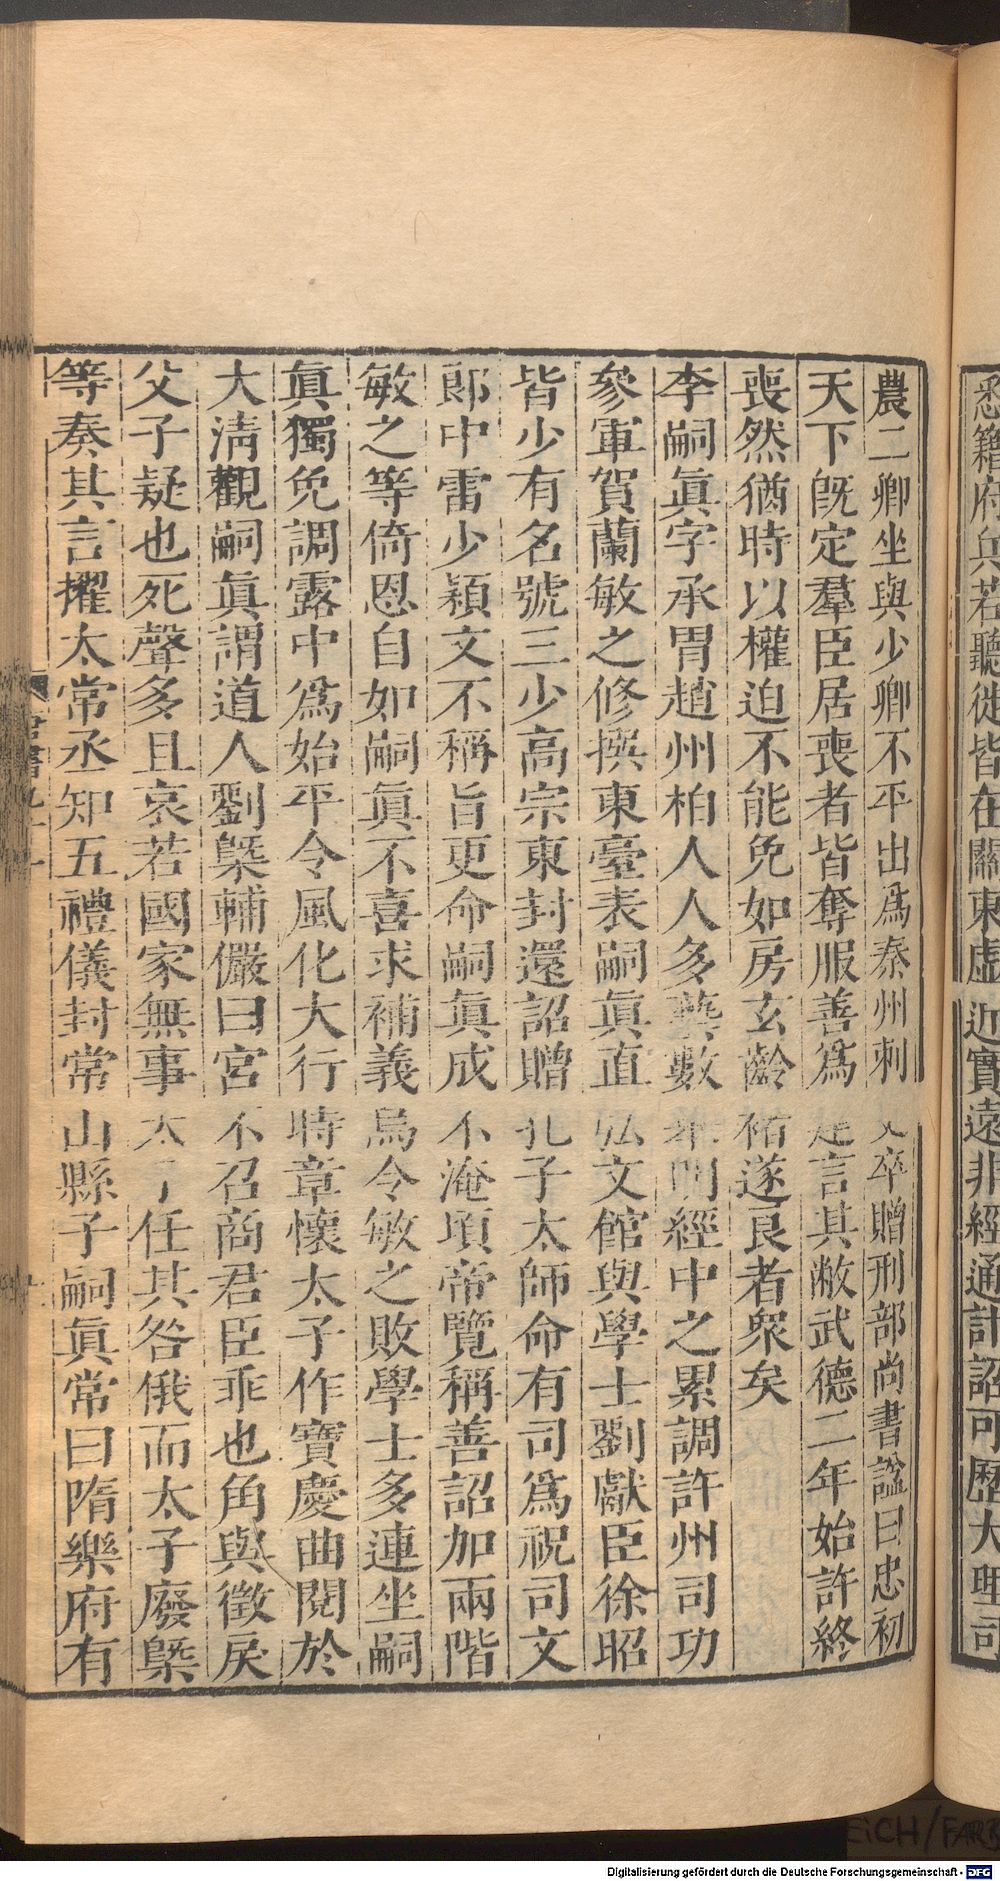 悉籍府兵若聽徙皆在關東虛近實遠非經通計詔可歷大理司
農二卿坐與少卿不平出爲秦州刺史卒贈刑部尚書諡曰忠初
天下既定羣臣居喪者皆奪服善爲建言其敝武德二年始許終
喪然猶時以權迫不能免如房玄齡褚遂良者衆矣
李嗣眞字承胄趙州柏人人多藝數舉明經中之累調許州司功
參軍賀蘭敏之修撰東臺表嗣眞直弘文館與學士劉獻臣徐昭
皆少有名號三少高宗東封還詔贈孔子太師命有司爲祝司文
郎中雷少穎文不稱旨更命嗣眞成不淹頃帝覽稱善詔加兩階
敏之等倚恩自如嗣眞不喜求補義烏令敏之敗學士多連坐嗣
眞獨免調露中爲始平令風化大行時章懷太子作寶慶曲閱於
大清觀嗣眞謂道人劉槩輔儼曰宮不召商君臣乖也角與徵戾
父子疑也死聲多且哀若國家無事太子任其咎俄而太子廢槩
等奏其言擢太常丞知五禮儀封常山縣子嗣眞常曰隋樂府有
Digitalisierung gefördert durch die Deutsche Forschungsgemeinschaft - DFG